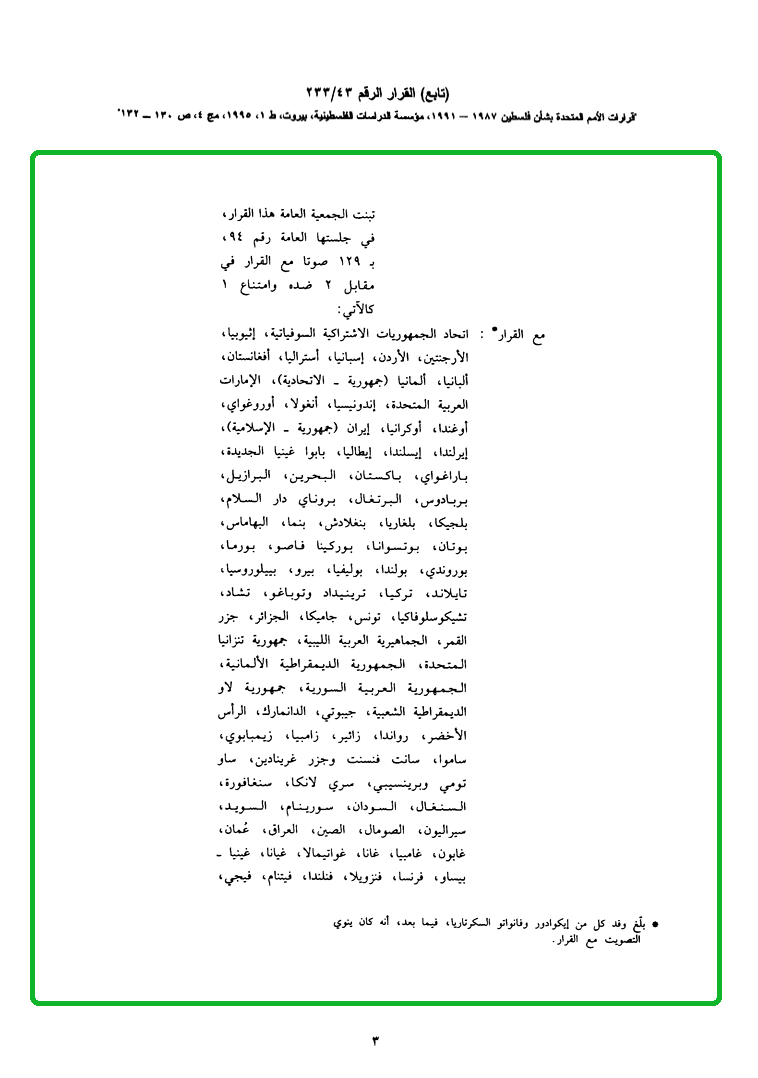 (تابع) القرار الرقم ٢٣٣/٤٣
"قرارات الأمم المتحدة بشأن فلسطين ١٩٨٧ – ١٩٩١، مؤسسة الدراسات الفلسطينية، بيروت، ط ١، ١٩٩٥، مج ٤، ص ١٣٠ – ١٣٢"
تبنت الجمعية العامة هذا القرار،
في جلستها العامة رقم ٩٤،
بـ ١٢٩ صوتا مع القرار في
مقابل ٢ ضده وامتناع ١
كالآتي:
مع القرار* : اتحاد الجمهوريات الاشتراكية السوفياتية، إثيوبيا،
الأرجنتين، الأردن، إسبانيا، أستراليا، أفغانستان،
ألبانيا، ألمانيا (جمهورية ـ الاتحادية)، الإمارات
العربية المتحدة، إندونيسيا، أنغولا، أوروغواي،
أوغندا، أوكرانيا، إيران (جمهورية ـ الإسلامية)،
إيرلندا، إيسلندا، إيطاليا، بابوا غينيا الجديدة،
باراغواي، باكستان، البحرين، البرازيل،
بربادوس، البرتغال، بروناي دار السلام،
بلجيكا، بلغاريا، بنغلادش، بنما، البهاماس،
بوتان، بوتسوانا، بوركينا فاصو، بورما،
بوروندي، بولندا، بوليفيا، بيرو، بييلوروسيا،
تايلاند، تركيا، ترينيداد وتوباغو، تشاد،
تشيكوسلوفاكيا، تونس، جاميكا، الجزائر، جزر
القمر، الجماهيرية العربية الليبية، جمهورية تنزانيا
المتحدة، الجمهورية الديمقراطية الألمانية،
الجمهورية العربية السورية، جمهورية لاو
الديمقراطية الشعبية، جيبوتي، الدانمارك، الرأس
الأخضر، رواندا، زائير، زامبيا، زيمبابوي،
ساموا، سانت فنسنت وجزر غرينادين، ساو
تومي وبرينسيبي، سري لانكا، سنغافورة،
السنغال، السودان، سورينام، السويد،
سيراليون، الصومال، الصين، العراق، عُمان،
غابون، غامبيا، غانا، غواتيمالا، غيانا، غينيا ـ
بيساو، فرنسا، فنزويلا، فنلندا، فيتنام، فيجي،
* بلّغ وفد كل من إيكوادور وفانواتو السكرتاريا، فيما بعد، أنه كان ينوي
التصويت مع القرار.
٣